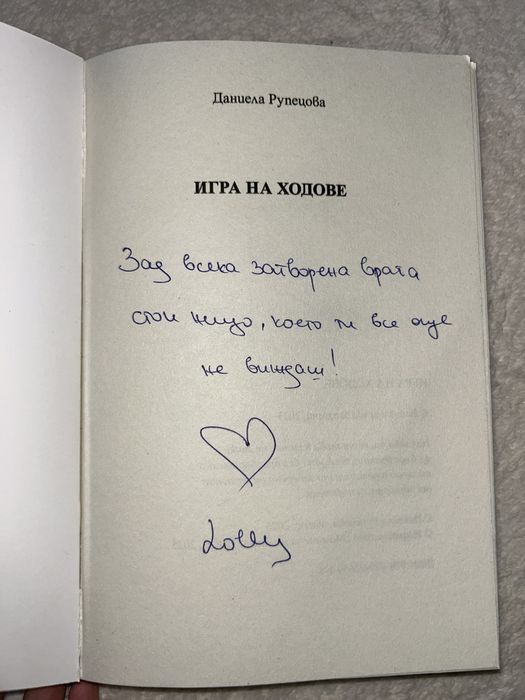 Даниела Рупецова
ИГРА НА ХОДОВЕ
Зад всяка затворена врата
стои нещо, което ти все още
не виждаш!
Lolly